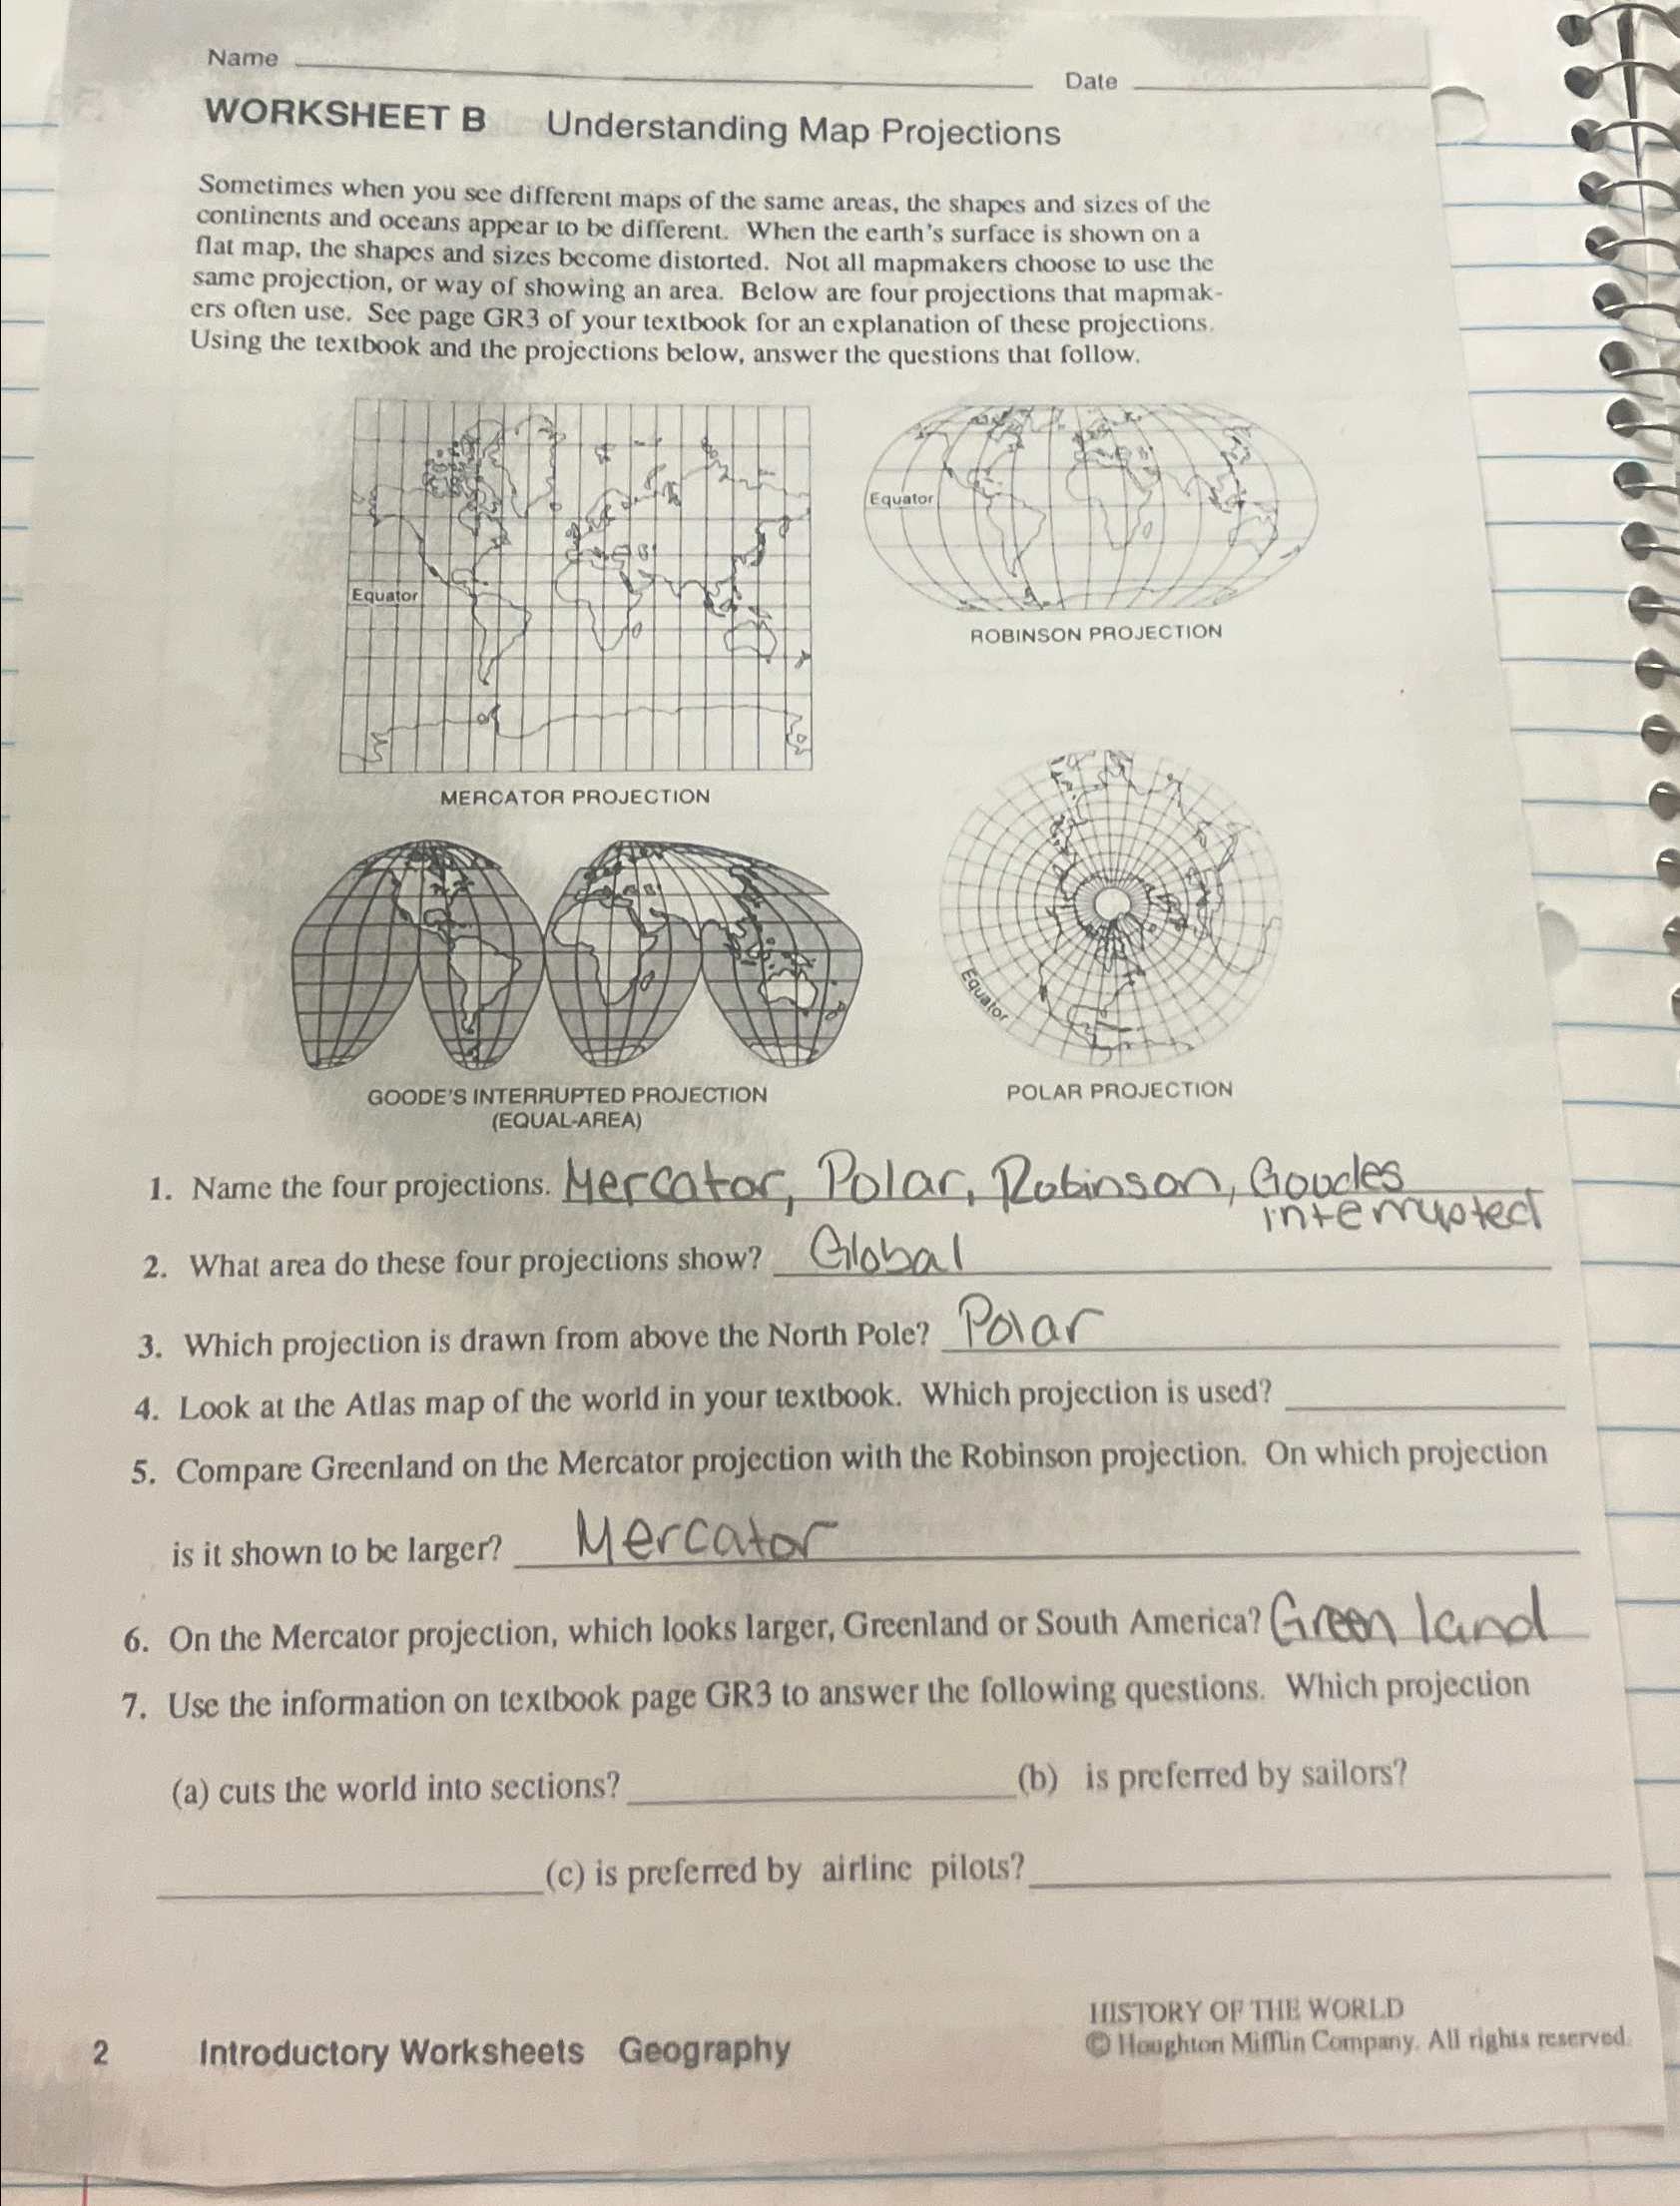 Name
Date
WORKSHEET B Understanding Map Projections
Sometimes when you see different maps of the same areas, the shapes and sizes of the
continents and oceans appear to be different. When the earth's surface is shown on a
flat map, the shapes and sizes become distorted. Not all mapmakers choose to use the
same projection, or way of showing an area. Below are four projections that mapmak-
ers often use. See page GR3 of your textbook for an explanation of these projections.
Using the textbook and the projections below, answer the questions that follow.
Equator
Equator
ROBINSON PROJECTION
MERCATOR PROJECTION
Equator
GOODE'S INTERRUPTED PROJECTION
(EQUAL-AREA)
POLAR PROJECTION
1. Name the four projections. Mercator, Polar, Robinson, Goodes
interrupted
2. What area do these four projections show? Global
3. Which projection is drawn from above the North Pole? Polar
4. Look at the Atlas map of the world in your textbook. Which projection is used?
5. Compare Greenland on the Mercator projection with the Robinson projection. On which projection
is it shown to be larger? Mercator
6. On the Mercator projection, which looks larger, Greenland or South America? Green land
7. Use the information on textbook page GR3 to answer the following questions. Which projection
(a) cuts the world into sections? (b) is preferred by sailors?
(c) is preferred by airline pilots?
HISTORY OF THE WORLD
2 Introductory Worksheets Geography
© Houghton Mifflin Company. All rights reserved.